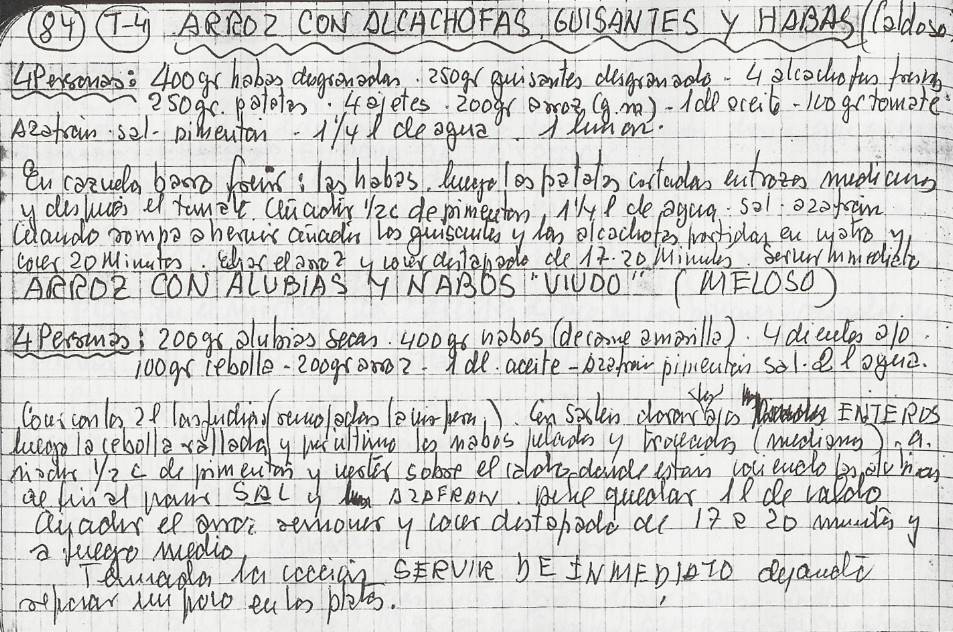 84 T-4 ARROZ CON ALCACHOFAS, GUISANTES Y HABAS (Caldoso
4 Personas: 400gr habas desgranadas · 250gr guisantes desgranado - 4 alcachofas frescas
250gr. patatas · 4 ajetes · 200gr arroz (g.m) - 1dl aceite - 100gr tomate
Azafran - sal - pimenton - 1 1/4 l de agua 1 limon.
En cazuela barro freir: las habas, luego las patatas cortadas en trozos medianos
y despues el tomate. Añadir 1/2c de pimenton, 1 1/4 l de agua - sal - azafran
Cuando rompa a hervir añadir los guisantes y las alcachofas partidas en cuatro y
cocer 20 Minutos. Echar el arroz y cocer destapado de 17-20 Minutos. Servir Inmediato
ARROZ CON ALUBIAS Y NABOS "VIUDO" (MELOSO)
4 Personas: 200gr alubias secas · 400gr nabos (de carne amarilla) · 4 dientes ajo ·
100gr cebolla - 200gr arroz - 1 dl. aceite - Azafran pimenton sal. 2 l agua.
Cocer con los 2l las judias (remojadas la vispera). En sarten dorar los ajos ENTEROS
luego la cebolla rallada, y por ultimo los nabos pelados y troceados (medianos), a-
ñadir 1/2 c de pimenton y verter sobre el caldo donde estan cociendo las alubias
al final poner SAL y AZAFRAN. Debe quedar 1l de caldo
Añadir el arroz remover y cocer destapado de 17 a 20 minutos y
a fuego medio,
Terminada la coccion SERVIR DE INMEDIATO dejando
reposar un poco en los platos.